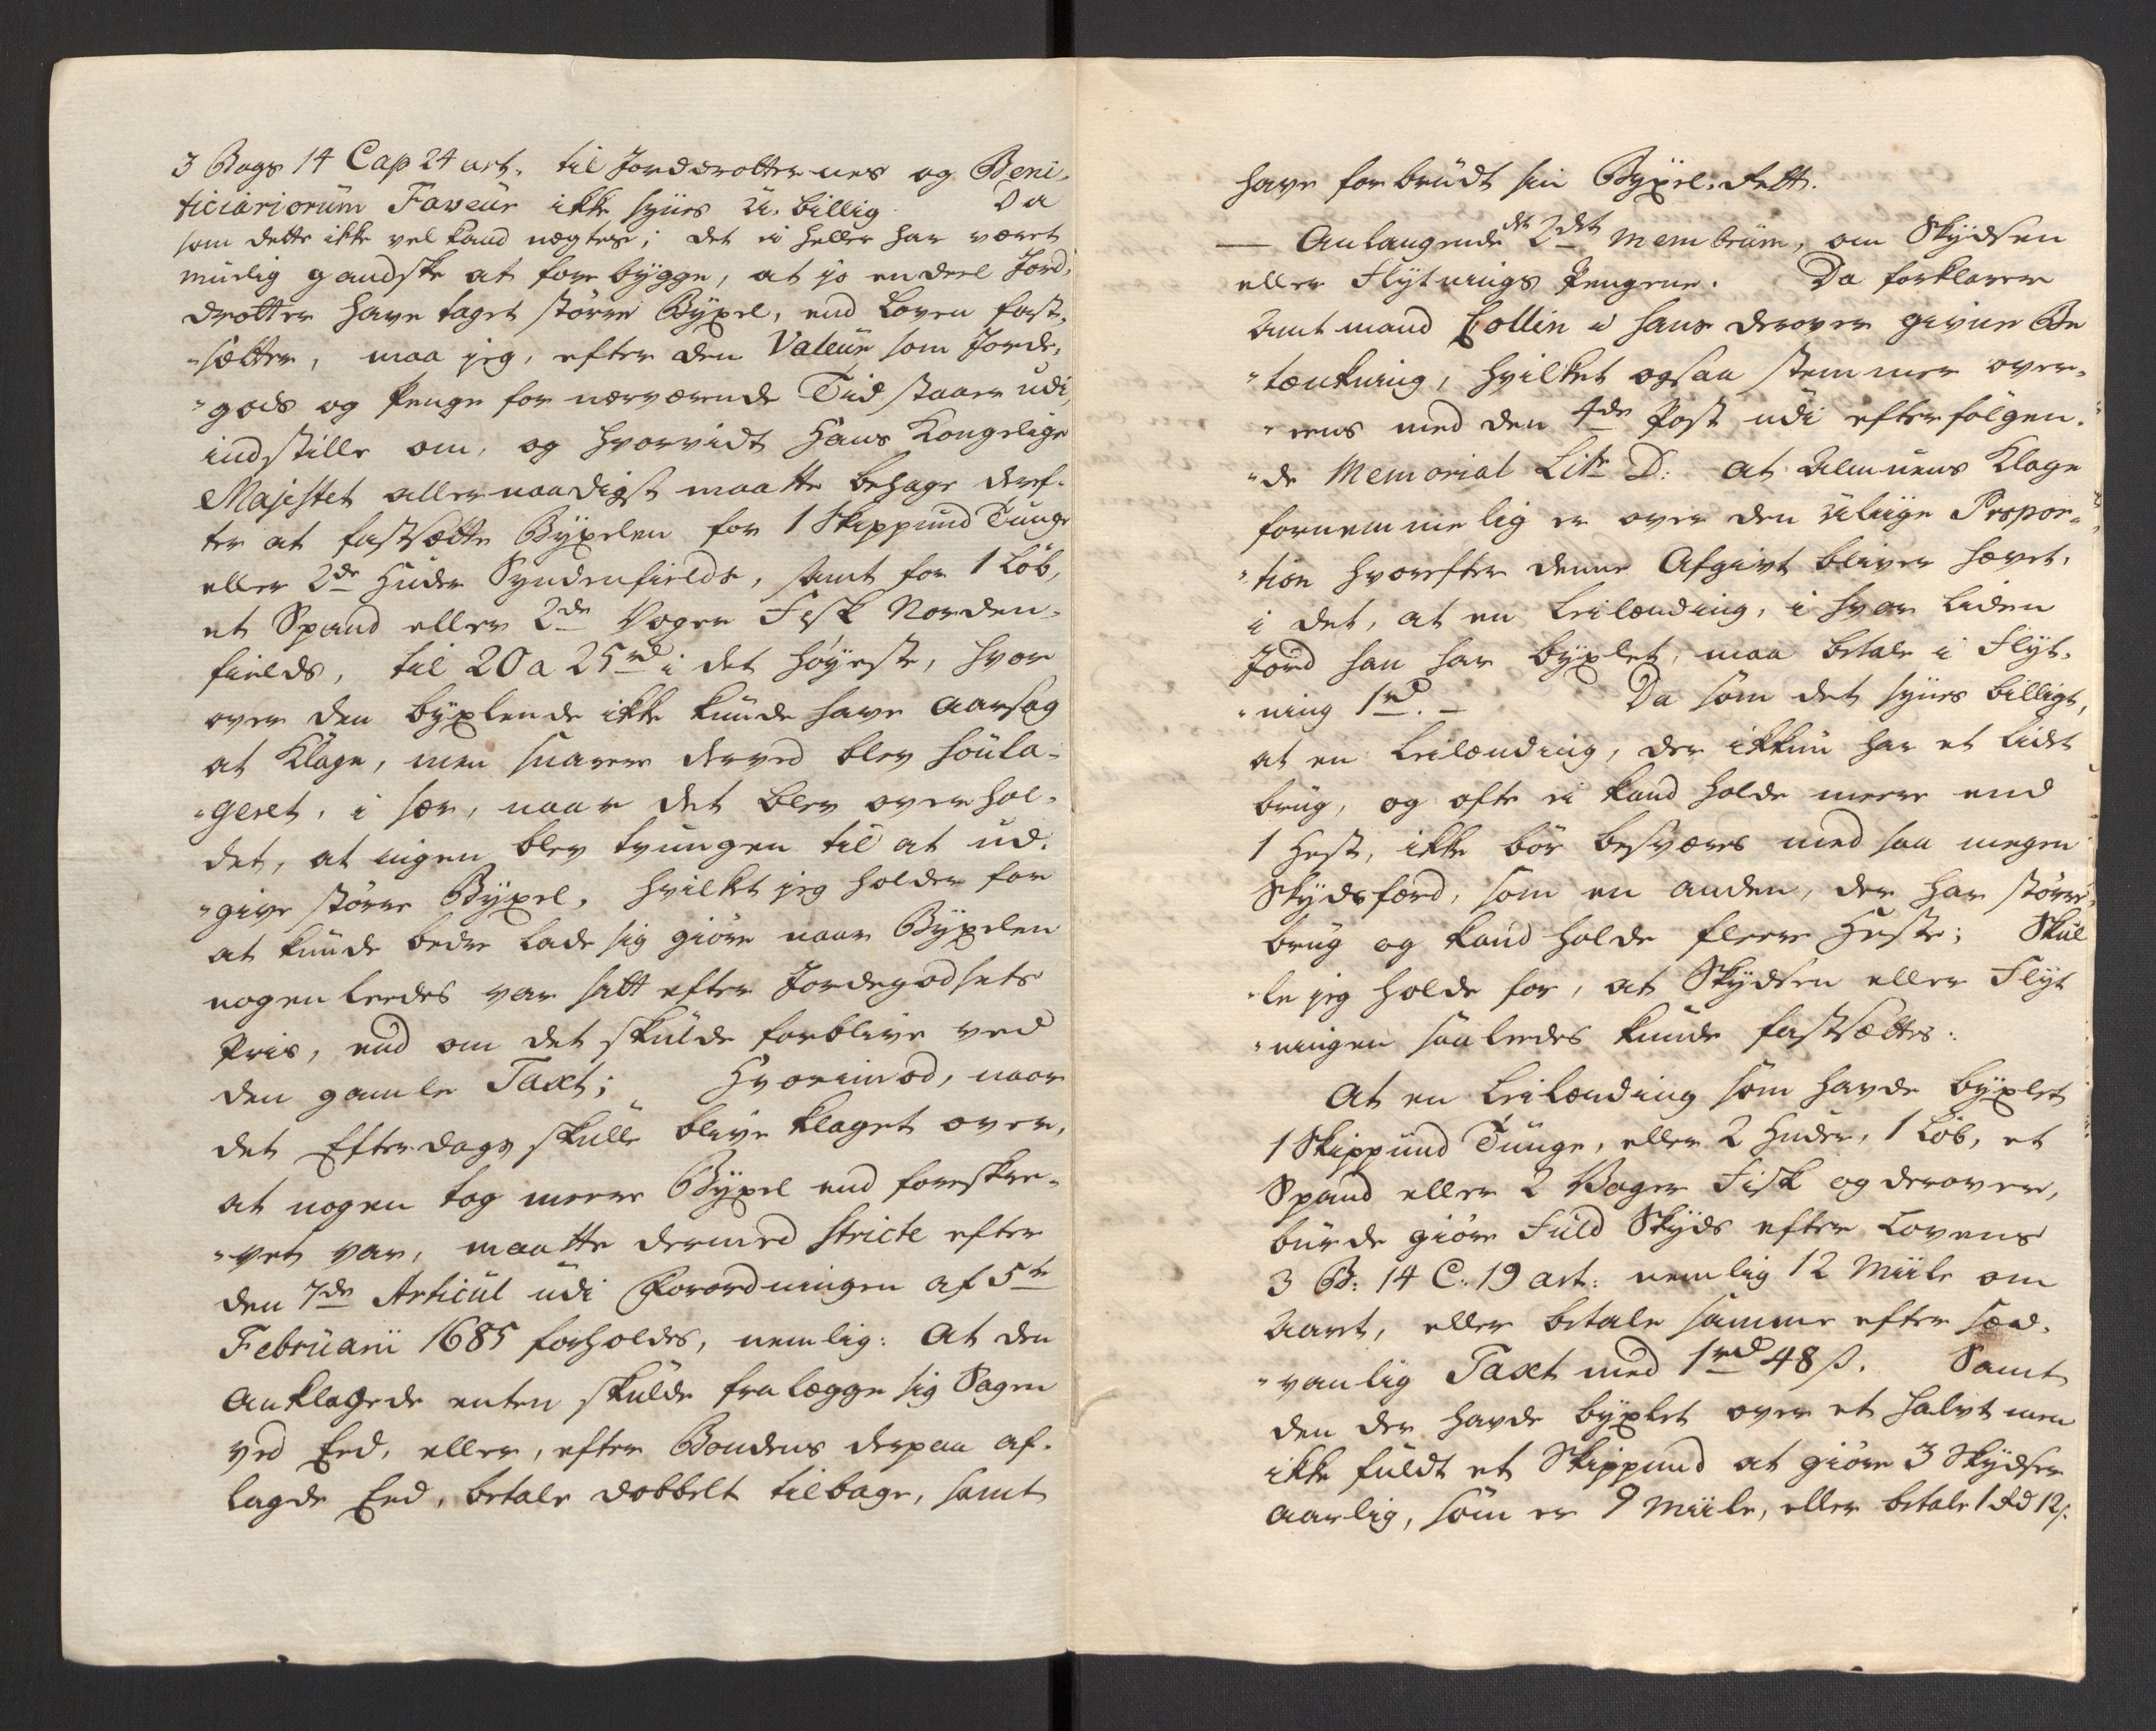 3 Bogs 14 Cap 24 art. til Jorddrotternes og Beni-
ficiariorum Faveur ikke synes u-billig. Da
som dette ikke vel kand nægtes; det ei heller har været
muelig gandske at forebygge, at jo endeel Jord-
drotter have taget större Byxel, end Loven fast-
"sætter, maa jeg, efter den Valeur som Jorde-
"gods og Penge for nærværende Tid staaer udi,
indstille om, og hvorvidt Hans Kongelige
Majestet allernaadigst maatte behage deref-
ter at fastsætte Byxelen for 1 Skippund Tunge
eller 2de Huder Syndenfields, samt for 1 Löb,
et Spand eller 2de Voger Fisk Norden-
fields, til 20 a 25 rd i det höyeste, hvor
over den byxlende ikke kunde have Aarsag
at Klage, men snarere derved blev soula-
"geret, i sær, naar det blev overhol-
det, at ingen blev tvungen til at ud-
"give större Byxel, hvilket jeg holder for
at kunde bedre lade sig giöre naar Byxelen
nogenleedes var satt efter Jordegodsets
Priis, end om det skulde forblive ved
den gamle Taxt; Hvorimod, naar
det Efterdags skulle blive klaget over,
at nogen tog meere Byxel end foreskre-
"vet var, maatte dermed stricte efter
den 7de Articul udi Forordningen af 5te
Februarii 1685 forholdes, nemlig: At den
Anklagede enten skulde fralægge sig Sagen
ved Eed, eller, efter Bondens derpaa af-
lagde Eed, betale dobbelt tilbage, samt
have forbrudt sin Byxel-Rett.
— Anlangende dt 2det membrum, om Skydsen
eller Flytnings Pengene. Da forklarer
Amtmand Collin i hans derover givne Be
"tænkning, hvilket ogsaa stemmer over-
"eens med den 4de Post udi efterfölgen-
"de Memorial Litr D: at Almuens Klage
fornemmelig er over den uliige Propor-
"tion hvorefter denne Afgivt bliver hævet,
i det, at en Leilænding, i hvor liden
Jord han har byxlet, maa betale i Flyt-
"ning 1 rd. – Da som det synes billigt,
at en Leilænding, der ikkun har et lidet
brug, og ofte ei kand holde meere end
1 Hest, ikke bör besværes med saa megen
Skydsfærd, som en anden, der har större
brug og kand holde fleere Heste; Skul
"le jeg holde for, at Skydsen eller Flyt
"ningen saaledes kunde fastsættes:
At en Leilænding som havde byxlet
1 Skippund Tunge, eller 2 Huder, 1 Löb, et
Spand eller 2 Voger Fisk og derover,
burde giöre Fuld Skyds efter Lovens
3 B: 14 C: 19 art: nemlig 12 Miile om
Aaret, eller betale samme efter sæd-
"vanlig Taxt med 1 rd 48 s. Samt
den der havde byxlet over et halvt men
ikke fuldt et Skippund at giöre 3 Skydser
aarlig, som er 9 Miile, eller betale 1 Rd 12 s.